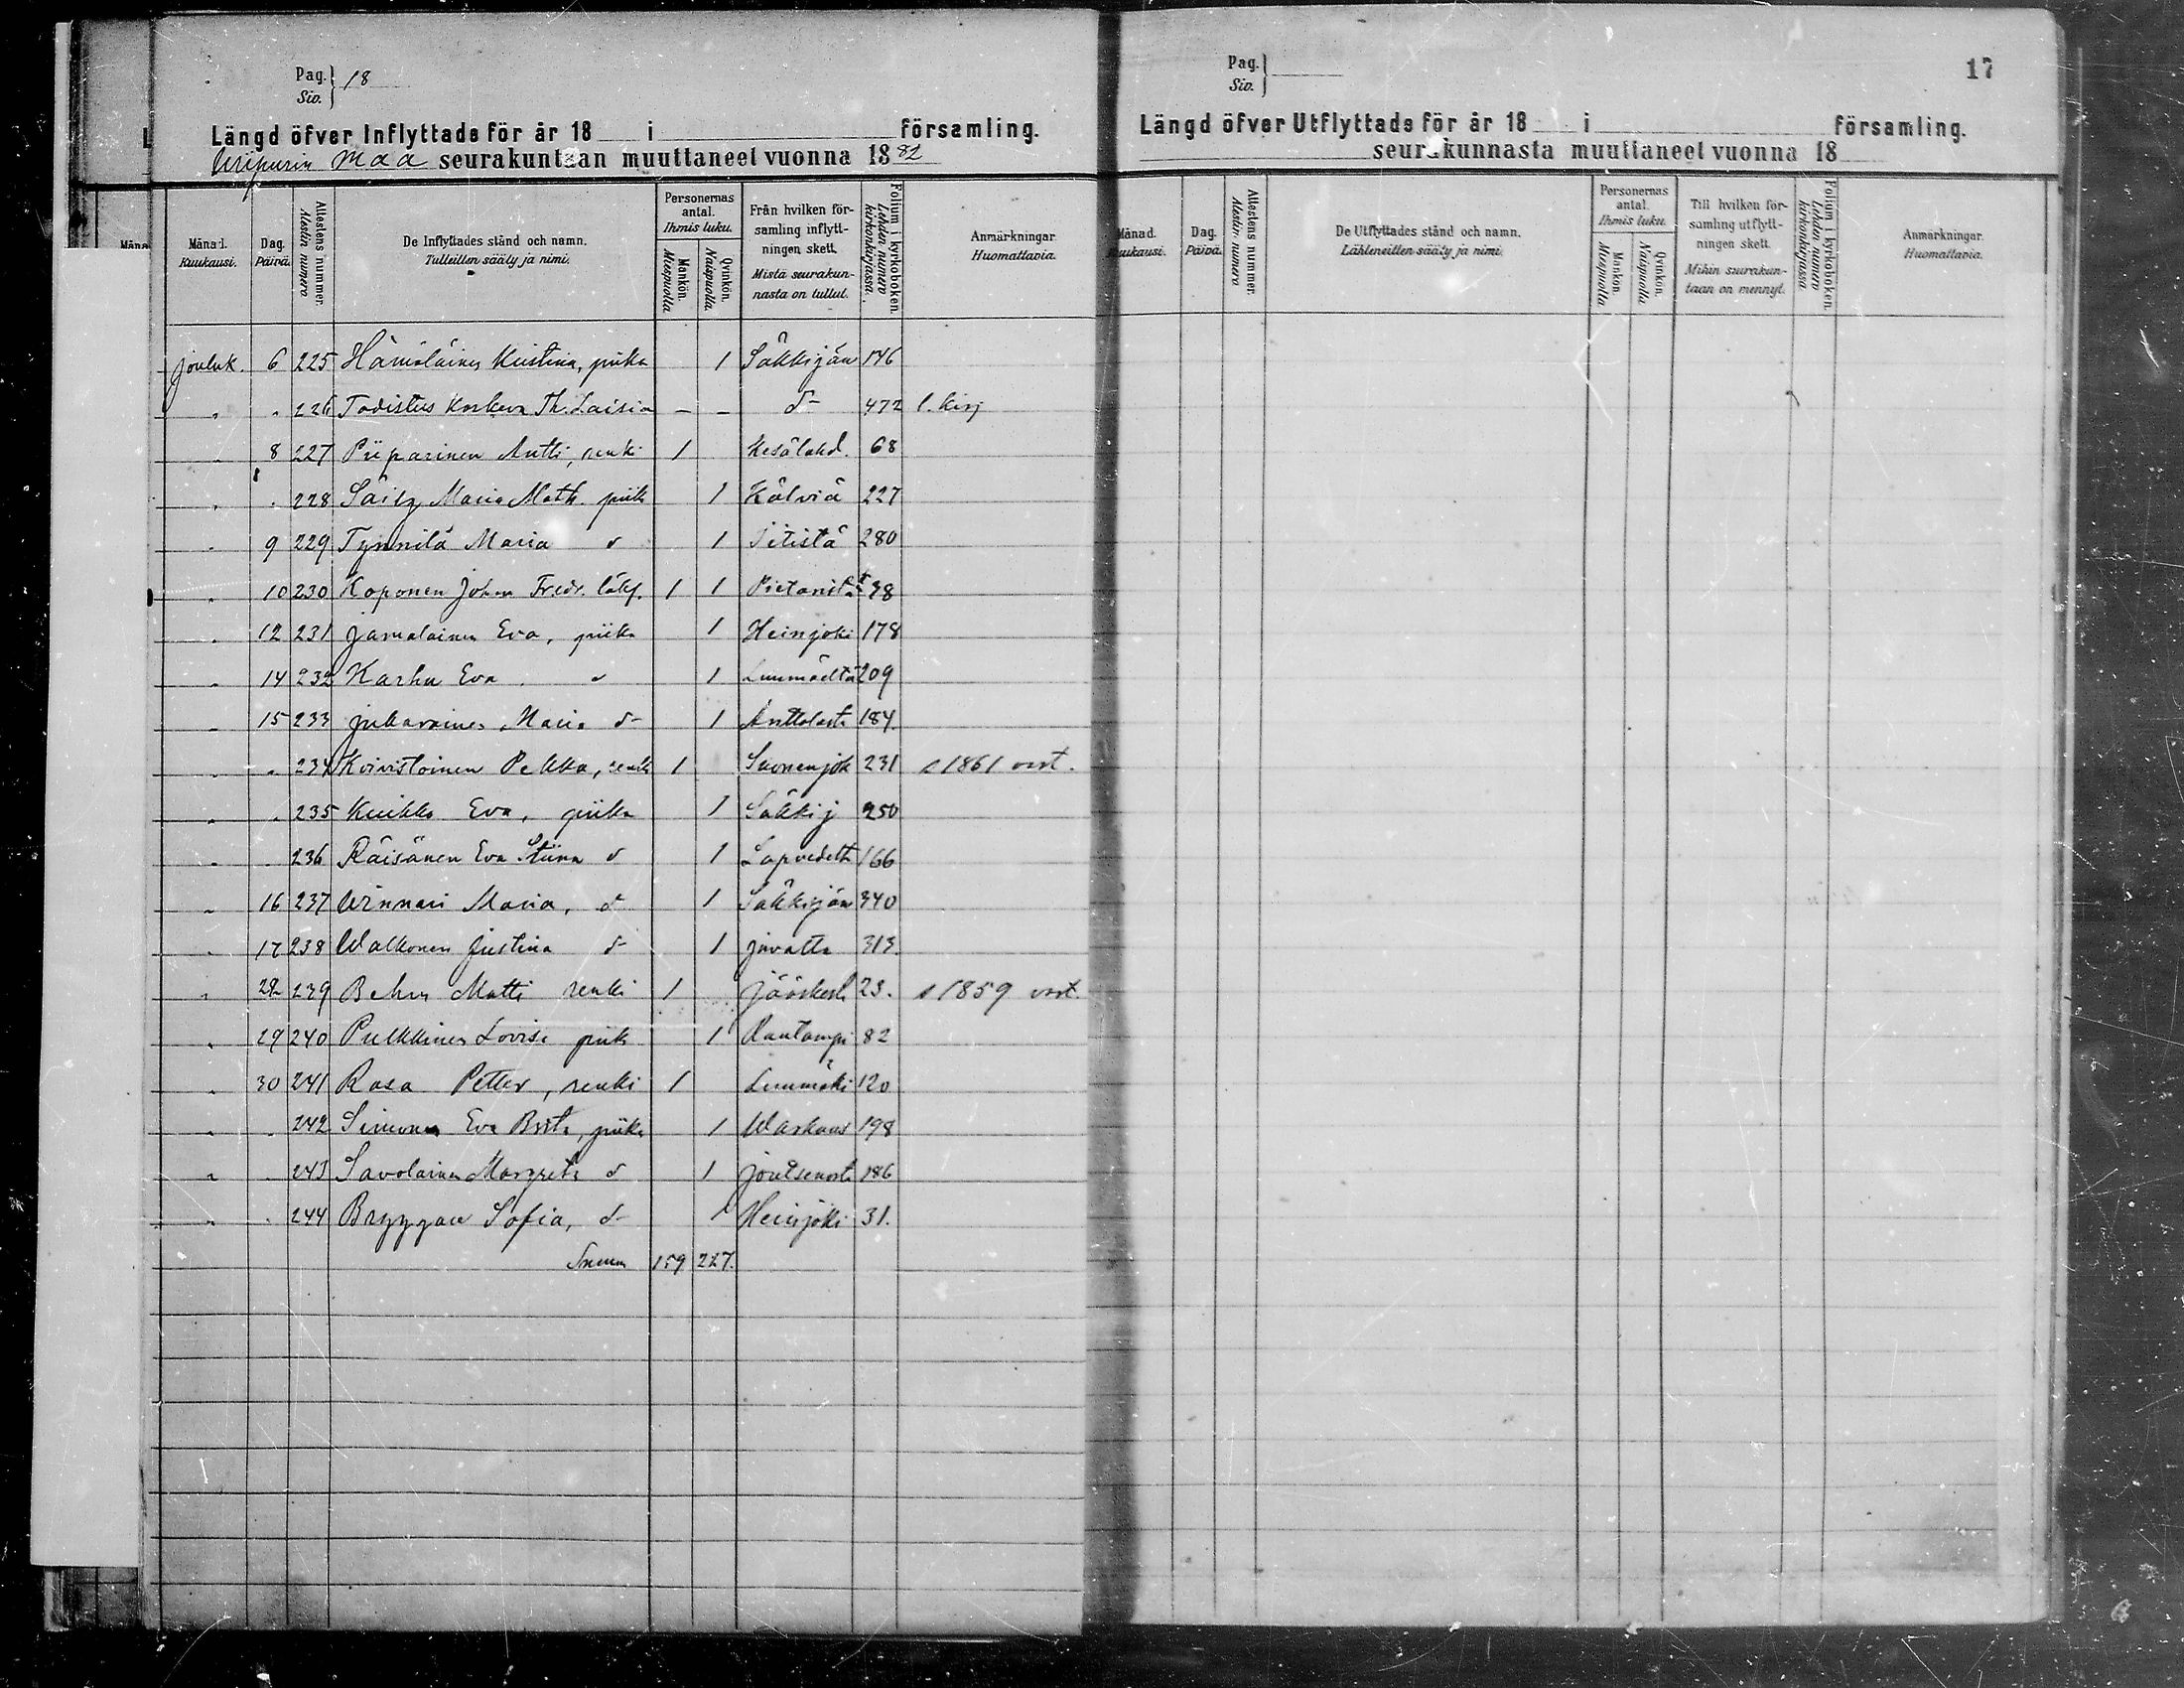 Pag. 18
Siv.
Längd öfver Inflyttade för år 18 i församling.
Wiipurin maa seurakuntaan muuttaneet vuonna 1882
Månad. Kuukausi. Dag. Päivä. Attestens nummer. Atestin numero De Inflyttades stånd och namn. Tulleitten sääty ja nimi. Personernas antal. Ihmis luku. Mankön. Miespuolia Qvinkön. Naispuolia. Från hvilken församling inflyttningen skett. Mistä seurakunnasta on tullut. Folium i kyrkoboken. Lehden numero kirkonkirjassa. Anmärkningar Huomattavia.
Jouluk. 6 225 Hämäläinen Kristina, piika 1 Säkkijärv 146
" " 226 Todistus Koskeva Th. Laisia — — d- 472 l. kirj
" 8 227 Piiparinen Antti, renki 1 Kesälahd. 68
" " 228 Maria Math. piik 1 Kälviä 227
" 9 229 Tynnilä Maria d 1 Iitistä 280
" 10 230 Koponen Johan Fredr. 1 1 38
" 12 231 Jamalainen Eva, piika 1 Heinjoki 178
" 14 232 Karhu Eva d 1 Luumäeltä 209
" 15 233 Maria d- 1 Anttolasta 184.
" " 234 Koivistoinen Pekka, renki 1 Suonenjok 231 s 1861
" " 235 Kuikko Eva, piika 1 Säkkij 250
" " 236 Räisänen Eva Stiina d 1 Lapvedeltä 166
" 16 237 Winnari Maria, d 1 Säkkijärv 340
" 17 238 Walkonen Justina d- 1 313.
" 28 239 Behm Matti renki 1 Jääskestä 23. s 1859
" 29 240 Pulkkinen Lovisa piik 1 Rautampi 82
" 30 241 Rasa Petter, renki 1 Lummäki 120
" " 242 Simonen Eva Brita, piika 1 Warkaus 198
" " 243 Savolainen Margreta d 1 Joutsenosta 186
" " 244 Bryggare Sofia, d- 1 Heinjoki 31.
Summa 159 227.
Pag.
Siv.
17
Längd öfver Utflyttade för år 18 i församling.
seurakunnasta muuttaneet vuonna 18
Månad. Kuukausi. Dag. Päivä. Attestens nummer. Atestin numero De Utflyttades stånd och namn. Lähteneitten sääty ja nimi. Personernas antal. Ihmis luku. Mankön. Miespuolia Qvinkön. Naispuolia. Till hvilken församling utflyttningen skett. Mihin seurakuntaan on mennyt. Folium i kyrkoboken. Lehden numero kirkonkirjassa Anmärkningar. Huomattavia.